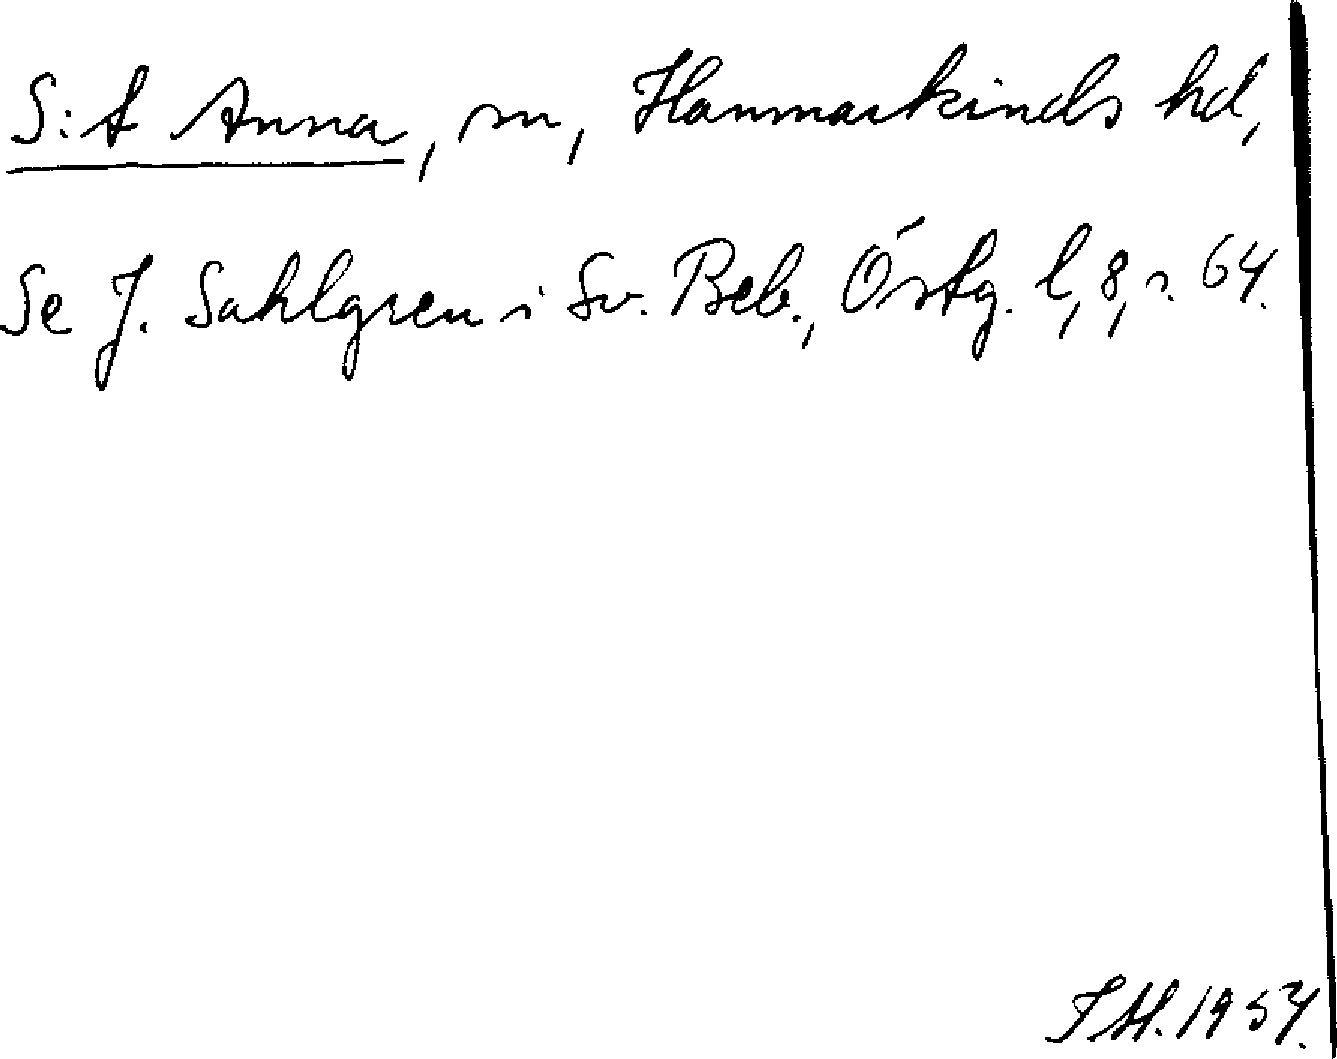 S:t Anna, sn, Hammarkinds hd,
Se J. Sahlgren i Sv. Beb., Östg. l, 8, s. 64.